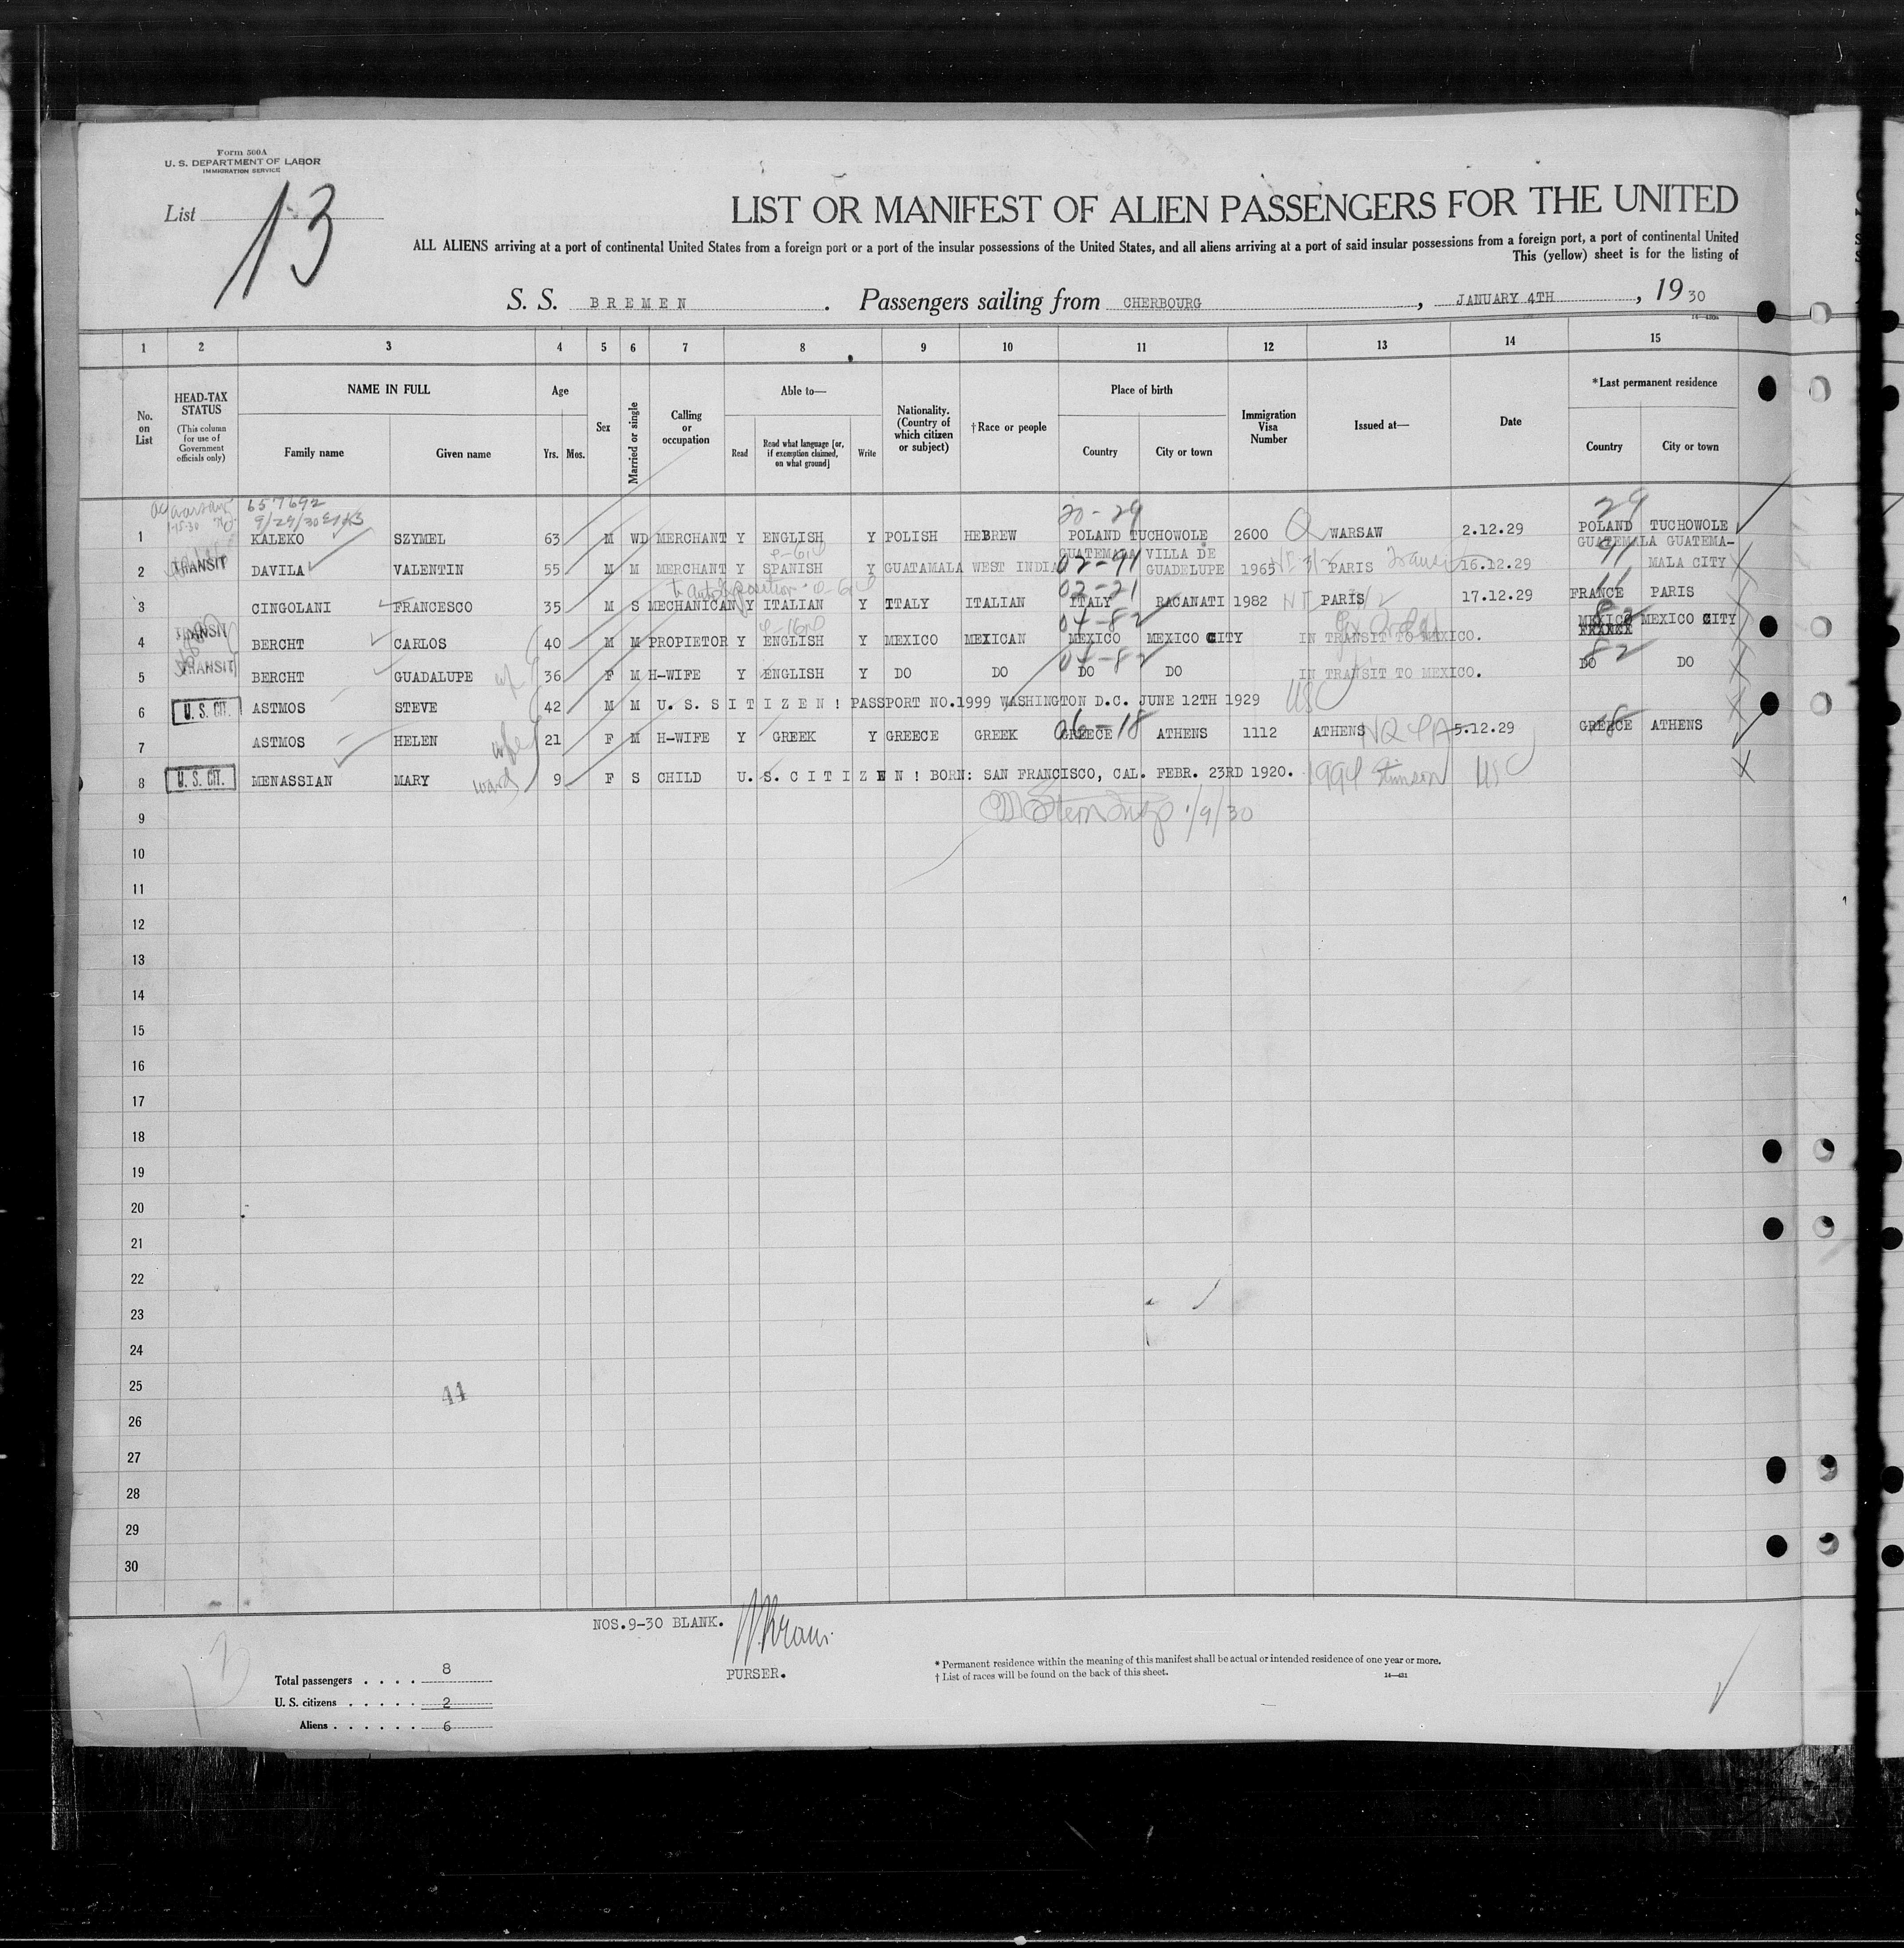 Form 500A
U. S. DEPARTMENT OF LABOR
IMMIGRATION SERVICE
List 13
LIST OR MANIFEST OF ALIEN PASSENGERS FOR THE UNITED
ALL ALIENS arriving at a port of continental United States from a foreign port or a port of the insular possessions of the United States, and all aliens arriving at a port of said insular possessions from a foreign port, a port of continental United
This (yellow) sheet is for the listing of
S. S. BREMEN . Passengers sailing from CHERBOURG , JANUARY 4TH , 19 30
1 2 3 4 5 6 7 8 9 10 11 12 13 14 15
No. on List
HEAD-TAX STATUS (This column for use of Government officials only)
NAME IN FULL
Family name Given name
Age
Yrs. Mos.
Sex
Married or single
Calling or occupation
Able to—
Read Read what language [or, if exemption claimed, on what ground] Write
Nationality. (Country of which citizen or subject)
†Race or people
Place of birth
Country City or town
Immigration Visa Number
Issued at—
Date
*Last permanent residence
Country City or town
657692 20-29 29
9/29/30
1 KALEKO SZYMEL 63 M WD MERCHANT Y ENGLISH Y POLISH HEBREW POLAND TUCHOWOLE 2600 Q WARSAW 2.12.29 POLAND TUCHOWOLE
2 TRANSIT DAVILA VALENTIN 55 M M MERCHANT Y SPANISH Y GUATAMALA WEST INDIA GUATEMALA VILLA DE GUADELUPE 02-91 1965 PARIS Transit 16.12.29 GUATEMALA GUATEMA-MALA CITY 91
3 CINGOLANI FRANCESCO 35 M S MECHANICAN Y ITALIAN Y ITALY ITALIAN ITALY RACANATI 02-21 1982 PARIS 17.12.29 FRANCE PARIS
4 TRANSIT BERCHT CARLOS 40 M M PROPIETOR Y ENGLISH Y MEXICO MEXICAN MEXICO MEXICO CITY 04-82 IN TRANSIT TO MEXICO. MEXICO MEXICO CITY FRANCE
5 TRANSIT BERCHT GUADALUPE wf 36 F M H-WIFE Y ENGLISH Y DO DO DO DO 04-82 IN TRANSIT TO MEXICO. DO DO 82
6 U. S. CIT. ASTMOS STEVE 42 M M U. S. S I T I Z E N ! PASSPORT NO.1999 WASHINGTON D.C. JUNE 12TH 1929 USC
7 ASTMOS HELEN wife 21 F M H-WIFE Y GREEK Y GREECE GREEK GREECE ATHENS 06-18 1112 ATHENS 5.12.29 GREECE ATHENS 18
8 U. S. CIT. MENASSIAN MARY ward 9 F S CHILD U. S. C I T I Z E N ! BORN: SAN FRANCISCO, CAL. FEBR. 23RD 1920. USC
9 Stern Insp 1/9/30
10
11
12
13
14
15
16
17
18
19
20
21
22
23
24
25
44
26
27
28
29
30
NOS.9-30 BLANK.
PURSER.
Total passengers . . . . 8
U. S. citizens . . . . . 2
Aliens . . . . . . 6
* Permanent residence within the meaning of this manifest shall be actual or intended residence of one year or more.
† List of races will be found on the back of this sheet.
14—431